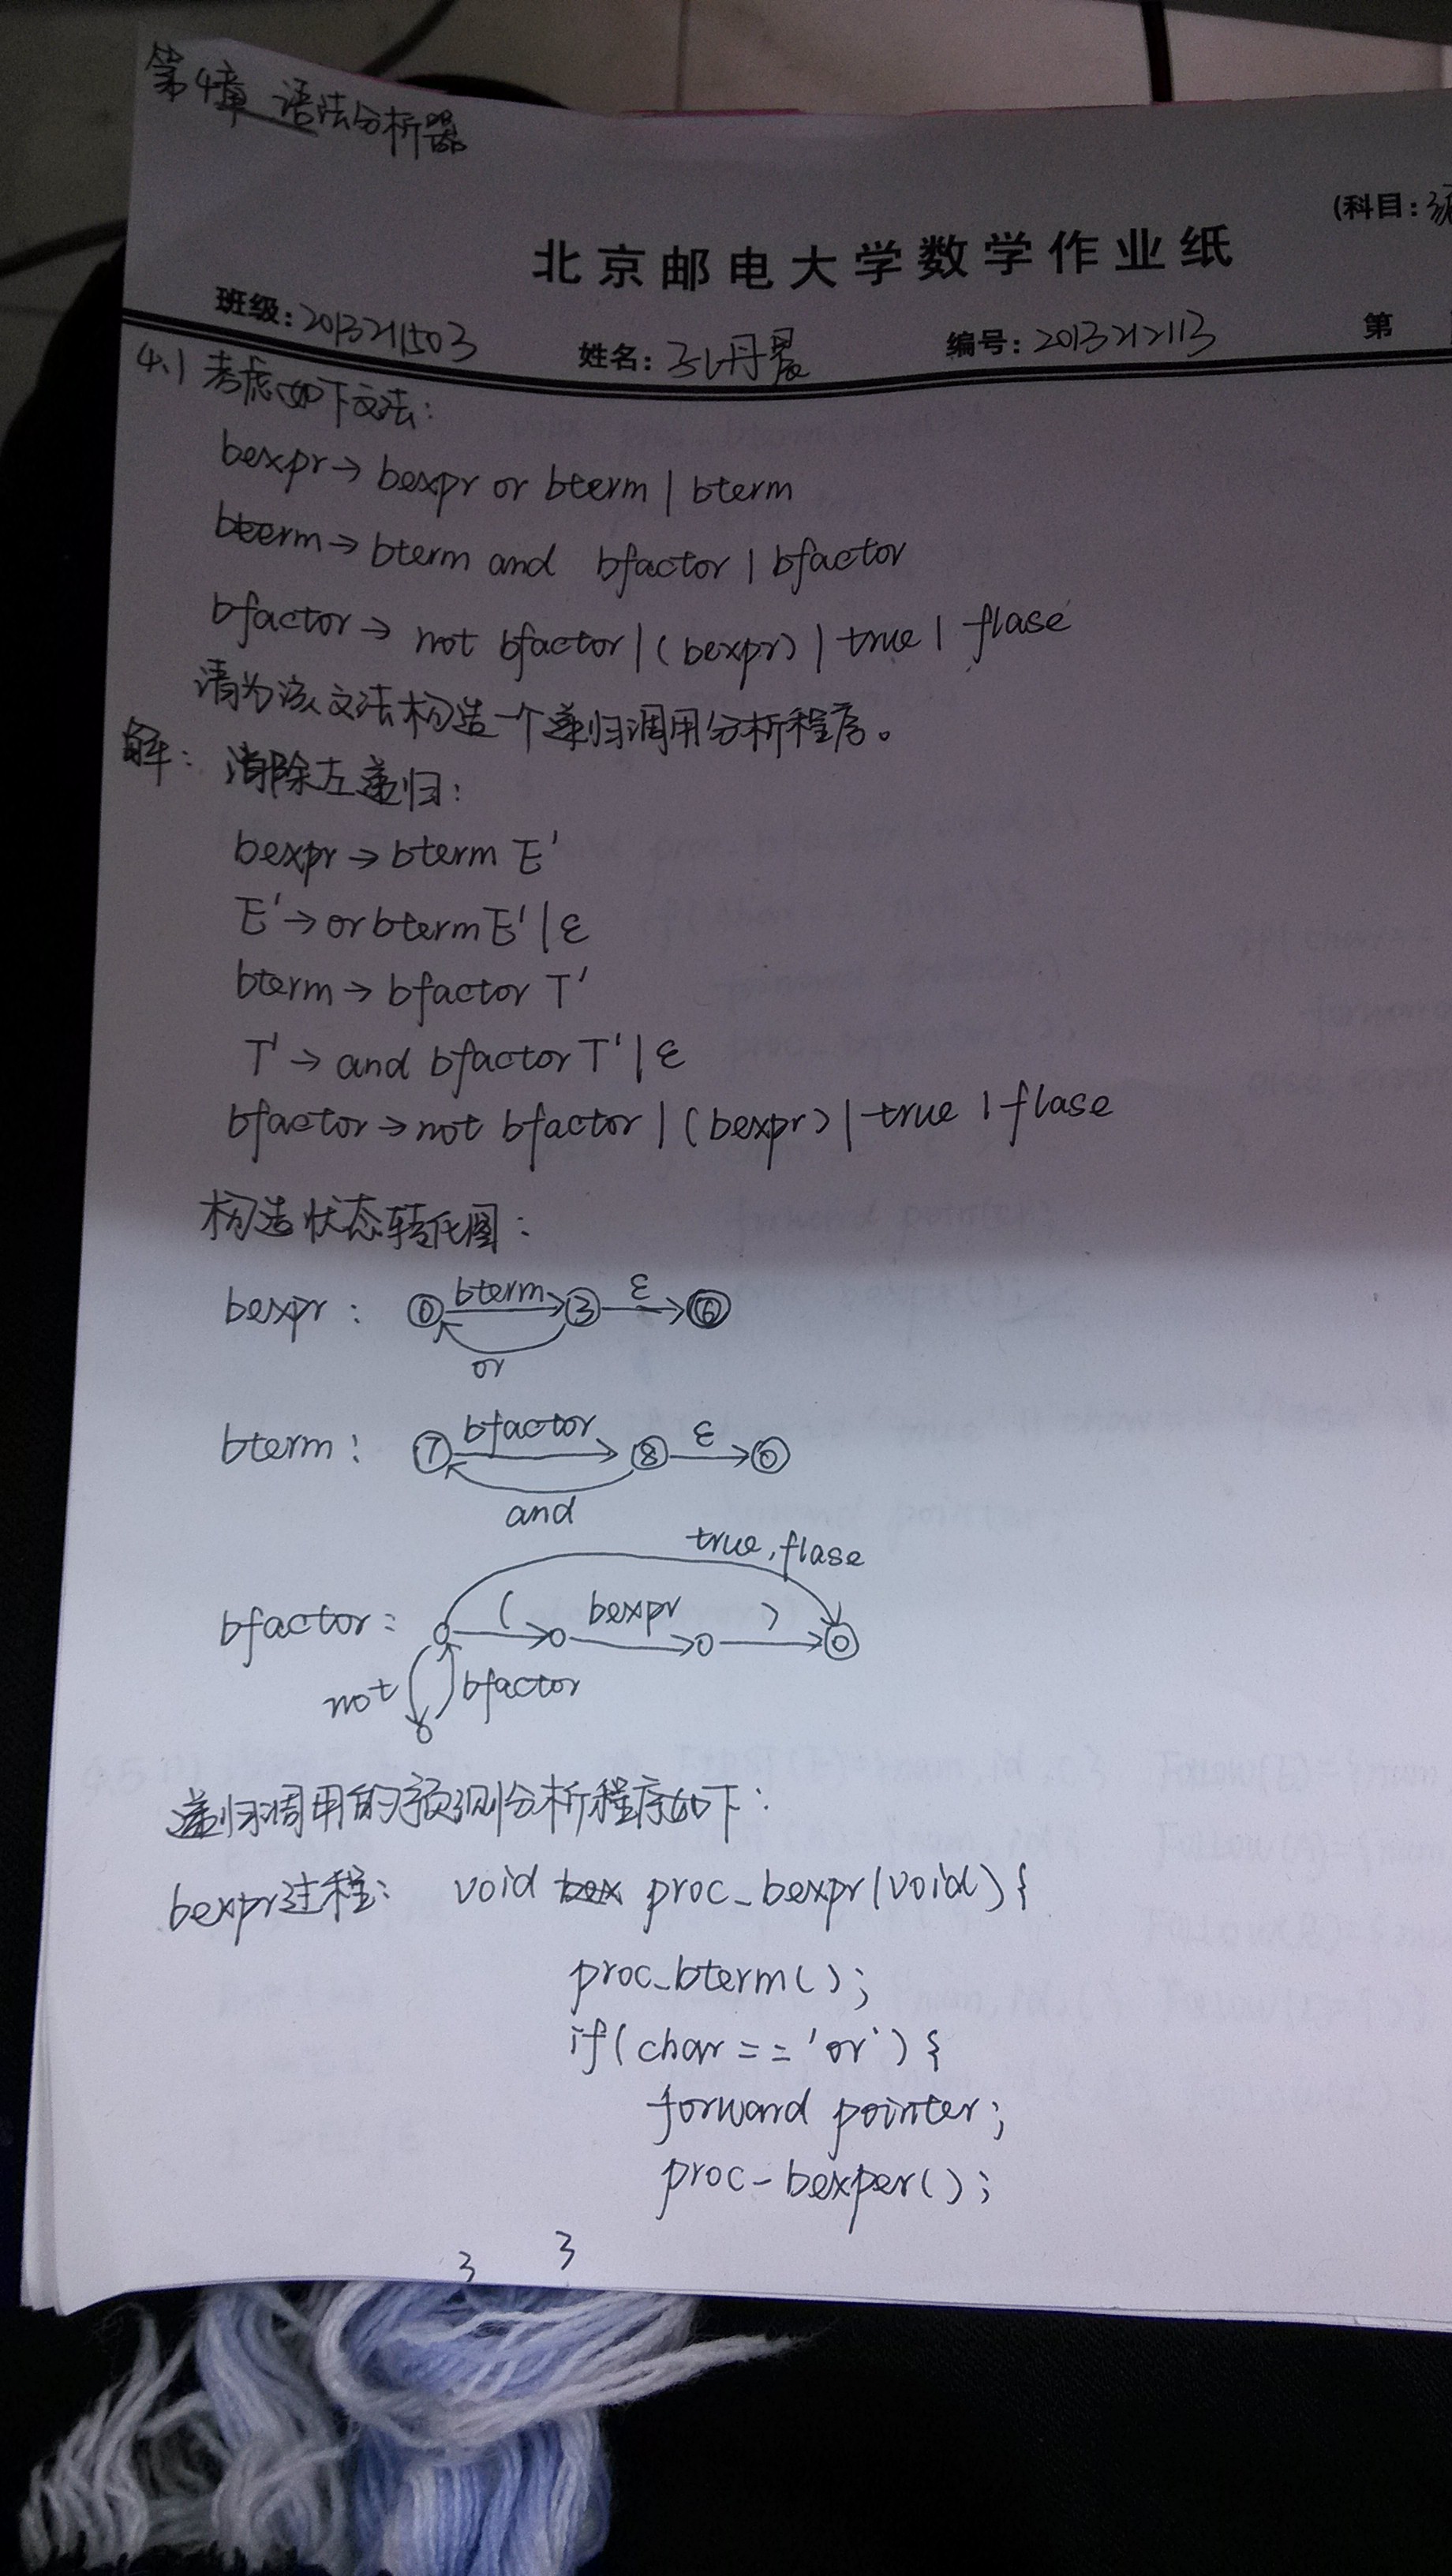 第4章 语法分析器
(科目:
北京邮电大学数学作业纸
班级: 2013211503 姓名: 孔丹晨 编号: 2013212113 第
4.1 考虑如下文法:
bexpr → bexpr or bterm | bterm
bterm → bterm and bfactor | bfactor
bfactor → not bfactor | (bexpr) | true | flase
请为该文法构造一个递归调用分析程序。
解: 消除左递归:
bexpr → bterm E'
E' → or bterm E' | ε
bterm → bfactor T'
T' → and bfactor T' | ε
bfactor → not bfactor | (bexpr) | true | flase
构造状态转化图:
bexpr: 0 bterm 3 ε 6
or
bterm: 7 bfactor 8 ε
and
true, flase
bfactor: ( bexpr )
not bfactor
递归调用的预测分析程序如下:
bexpr过程: void proc_bexpr(void) {
proc_bterm();
if(char == 'or') {
forward pointer;
proc-bexper();
} }